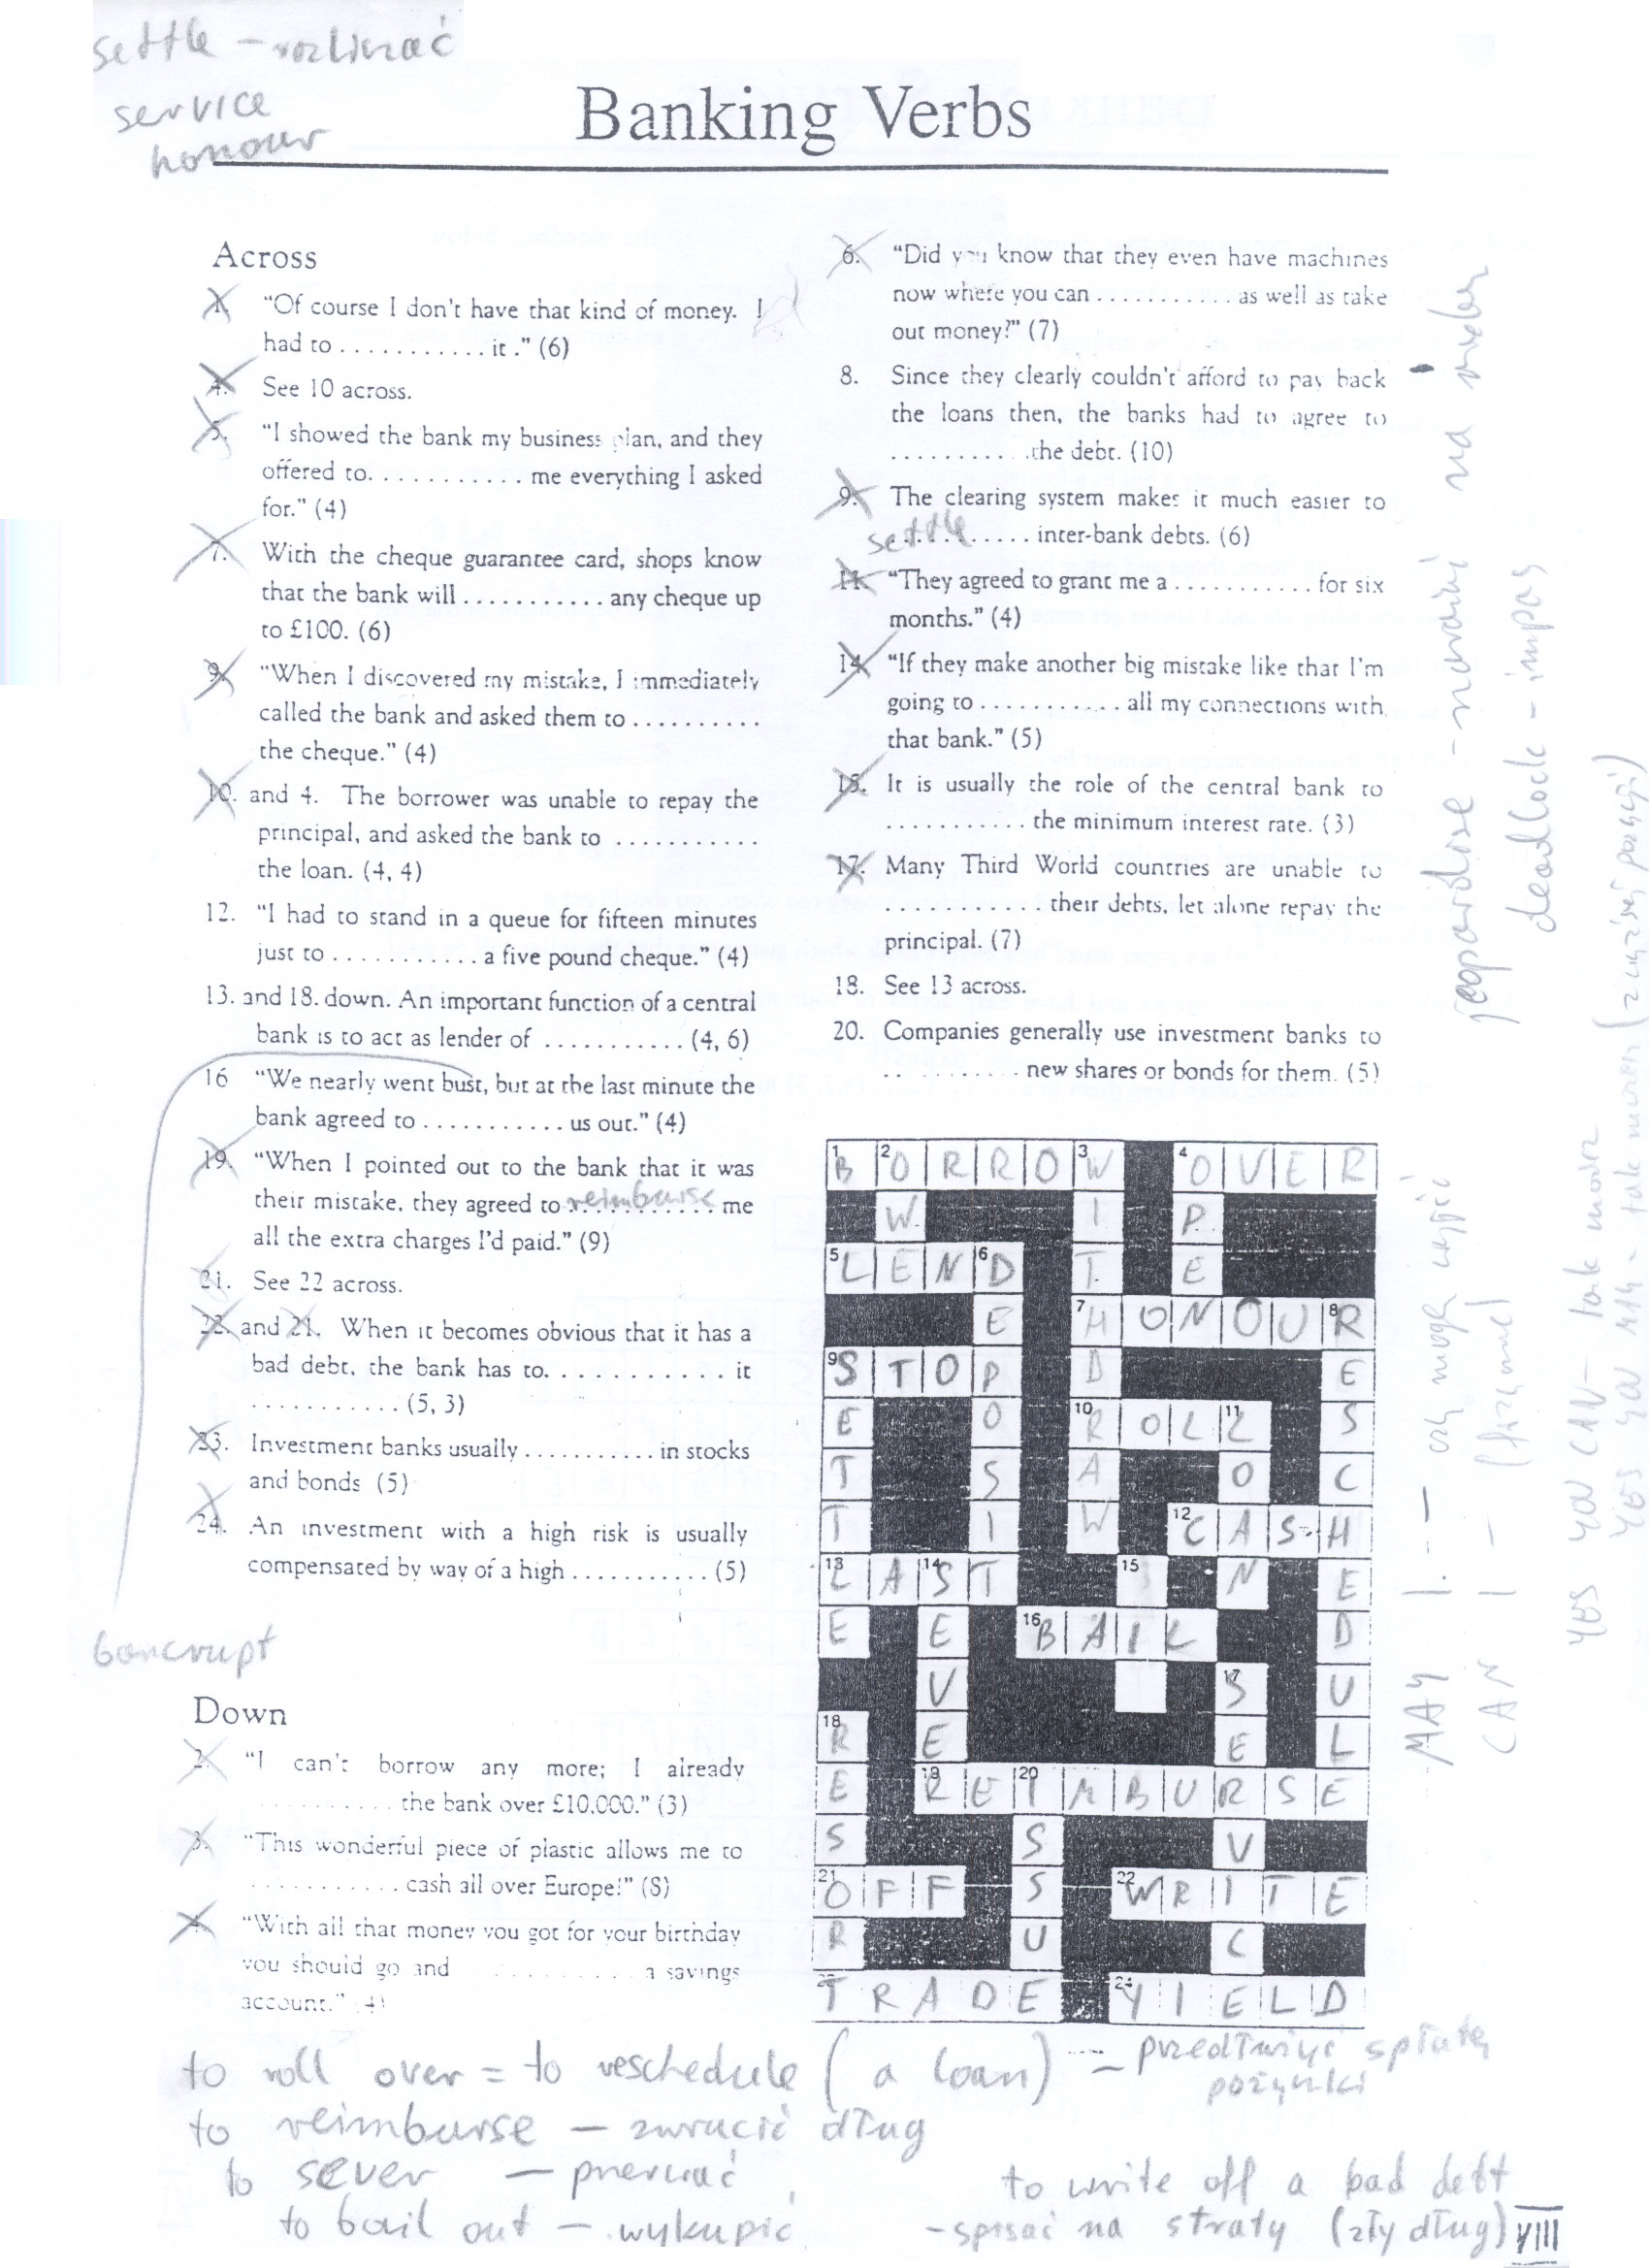 settle – rozliczać
service
honour
Banking Verbs
Across
1. "Of course I don't have that kind of money. I
had to ........... it ." (6)
4. See 10 across.
5. "I showed the bank my business plan, and they
offered to. .......... me everything I asked
for." (4)
7. With the cheque guarantee card, shops know
that the bank will ........... any cheque up
to £100. (6)
9. "When I discovered my mistake, I immediately
called the bank and asked them to ..........
the cheque." (4)
10. and 4. The borrower was unable to repay the
principal, and asked the bank to ...........
the loan. (4, 4)
12. "I had to stand in a queue for fifteen minutes
just to ........... a five pound cheque." (4)
13. and 18. down. An important function of a central
bank is to act as lender of ........... (4, 6)
16 "We nearly went bust, but at the last minute the
bank agreed to ........... us out." (4)
19. "When I pointed out to the bank that it was
their mistake, they agreed to reimburse me
all the extra charges I'd paid." (9)
21. See 22 across.
22. and 21. When it becomes obvious that it has a
bad debt, the bank has to. .......... it
........... (5, 3)
23. Investment banks usually .......... in stocks
and bonds (5)
24. An investment with a high risk is usually
compensated by way of a high ........... (5)
bancrupt
Down
2. "I can't borrow any more; I already
........... the bank over £10,000." (3)
3. "This wonderful piece of plastic allows me to
........... cash all over Europe!" (8)
4. "With all that money you got for your birthday
you should go and .......... a savings
account." (4)
6. "Did you know that they even have machines
now where you can ........... as well as take
out money?" (7)
8. Since they clearly couldn't afford to pay back
the loans then, the banks had to agree to
........... the debt. (10)
9. The clearing system makes it much easier to
settle ..... inter-bank debts. (6)
11. "They agreed to grant me a ........... for six
months." (4)
14. "If they make another big mistake like that I'm
going to ........... all my connections with
that bank." (5)
15. It is usually the role of the central bank to
........... the minimum interest rate. (3)
17. Many Third World countries are unable to
........... their debts, let alone repay the
principal. (7)
18. See 13 across.
20. Companies generally use investment banks to
........... new shares or bonds for them. (5)
1 B 2 O R R O 3 W 4 O V E R
W I P
5 L E N 6 D T E
E 7 H O N O U 8 R
9 S T O P D E
E O 10 R O L 11 L S
T S A O C
T I W 12 C A S H
13 L A 14 S T 15 N E
E E 16 B A I L D
V 17 S U
18 R E E L
E 19 R E 20 I M B U R S E
S S V
21 O F F S 22 W R I T E
R U C
23 T R A D E 24 Y I E L D
jeopardise – narazić na
deadlock – impas
MAY I – czy mogę wyjść
CAN I –
YES YOU CAN –
YES YOU MAY –
to roll over = to reschedule (a loan) – przedłużyć spłatę
pożyczki
to reimburse – zwrócić dług
to sever – przerwać
to bail out – wykupić
to write off a bad debt
– spisać na straty (zły dług)
VIII